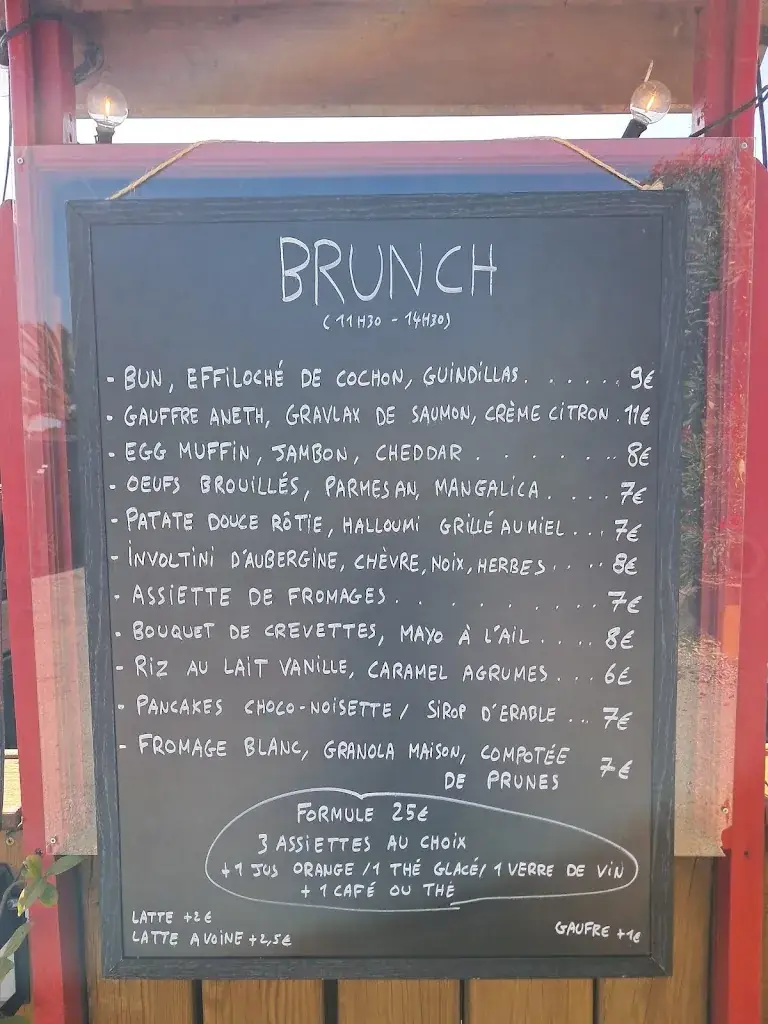 BRUNCH
(11H30 - 14H30)
- BUN, EFFILOCHÉ DE COCHON, GUINDILLAS. . . . . . 9€
- GAUFFRE ANETH, GRAVLAX DE SAUMON, CRÈME CITRON . 11€
- EGG MUFFIN, JAMBON, CHEDDAR . . . . . . . 8€
- OEUFS BROUILLÉS, PARMESAN, MANGALICA . . . . 7€
- PATATE DOUCE RÔTIE, HALLOUMI GRILLÉ AU MIEL . . . 7€
- INVOLTINI D'AUBERGINE, CHÈVRE, NOIX, HERBES . . . . 8€
- ASSIETTE DE FROMAGES . . . . . . . . . . 7€
- BOUQUET DE CREVETTES, MAYO À L'AIL . . . . 8€
- RIZ AU LAIT VANILLE, CARAMEL AGRUMES . . . 6€
- PANCAKES CHOCO-NOISETTE / SIROP D'ERABLE . . . 7€
- FROMAGE BLANC, GRANOLA MAISON, COMPOTÉE
DE PRUNES 7€
FORMULE 25€
3 ASSIETTES AU CHOIX
+1 JUS ORANGE /1 THÉ GLACÉ/ 1 VERRE DE VIN
+ 1 CAFÉ OU THÉ
LATTE +2€
LATTE AVOINE +2,5€
GAUFRE +1€